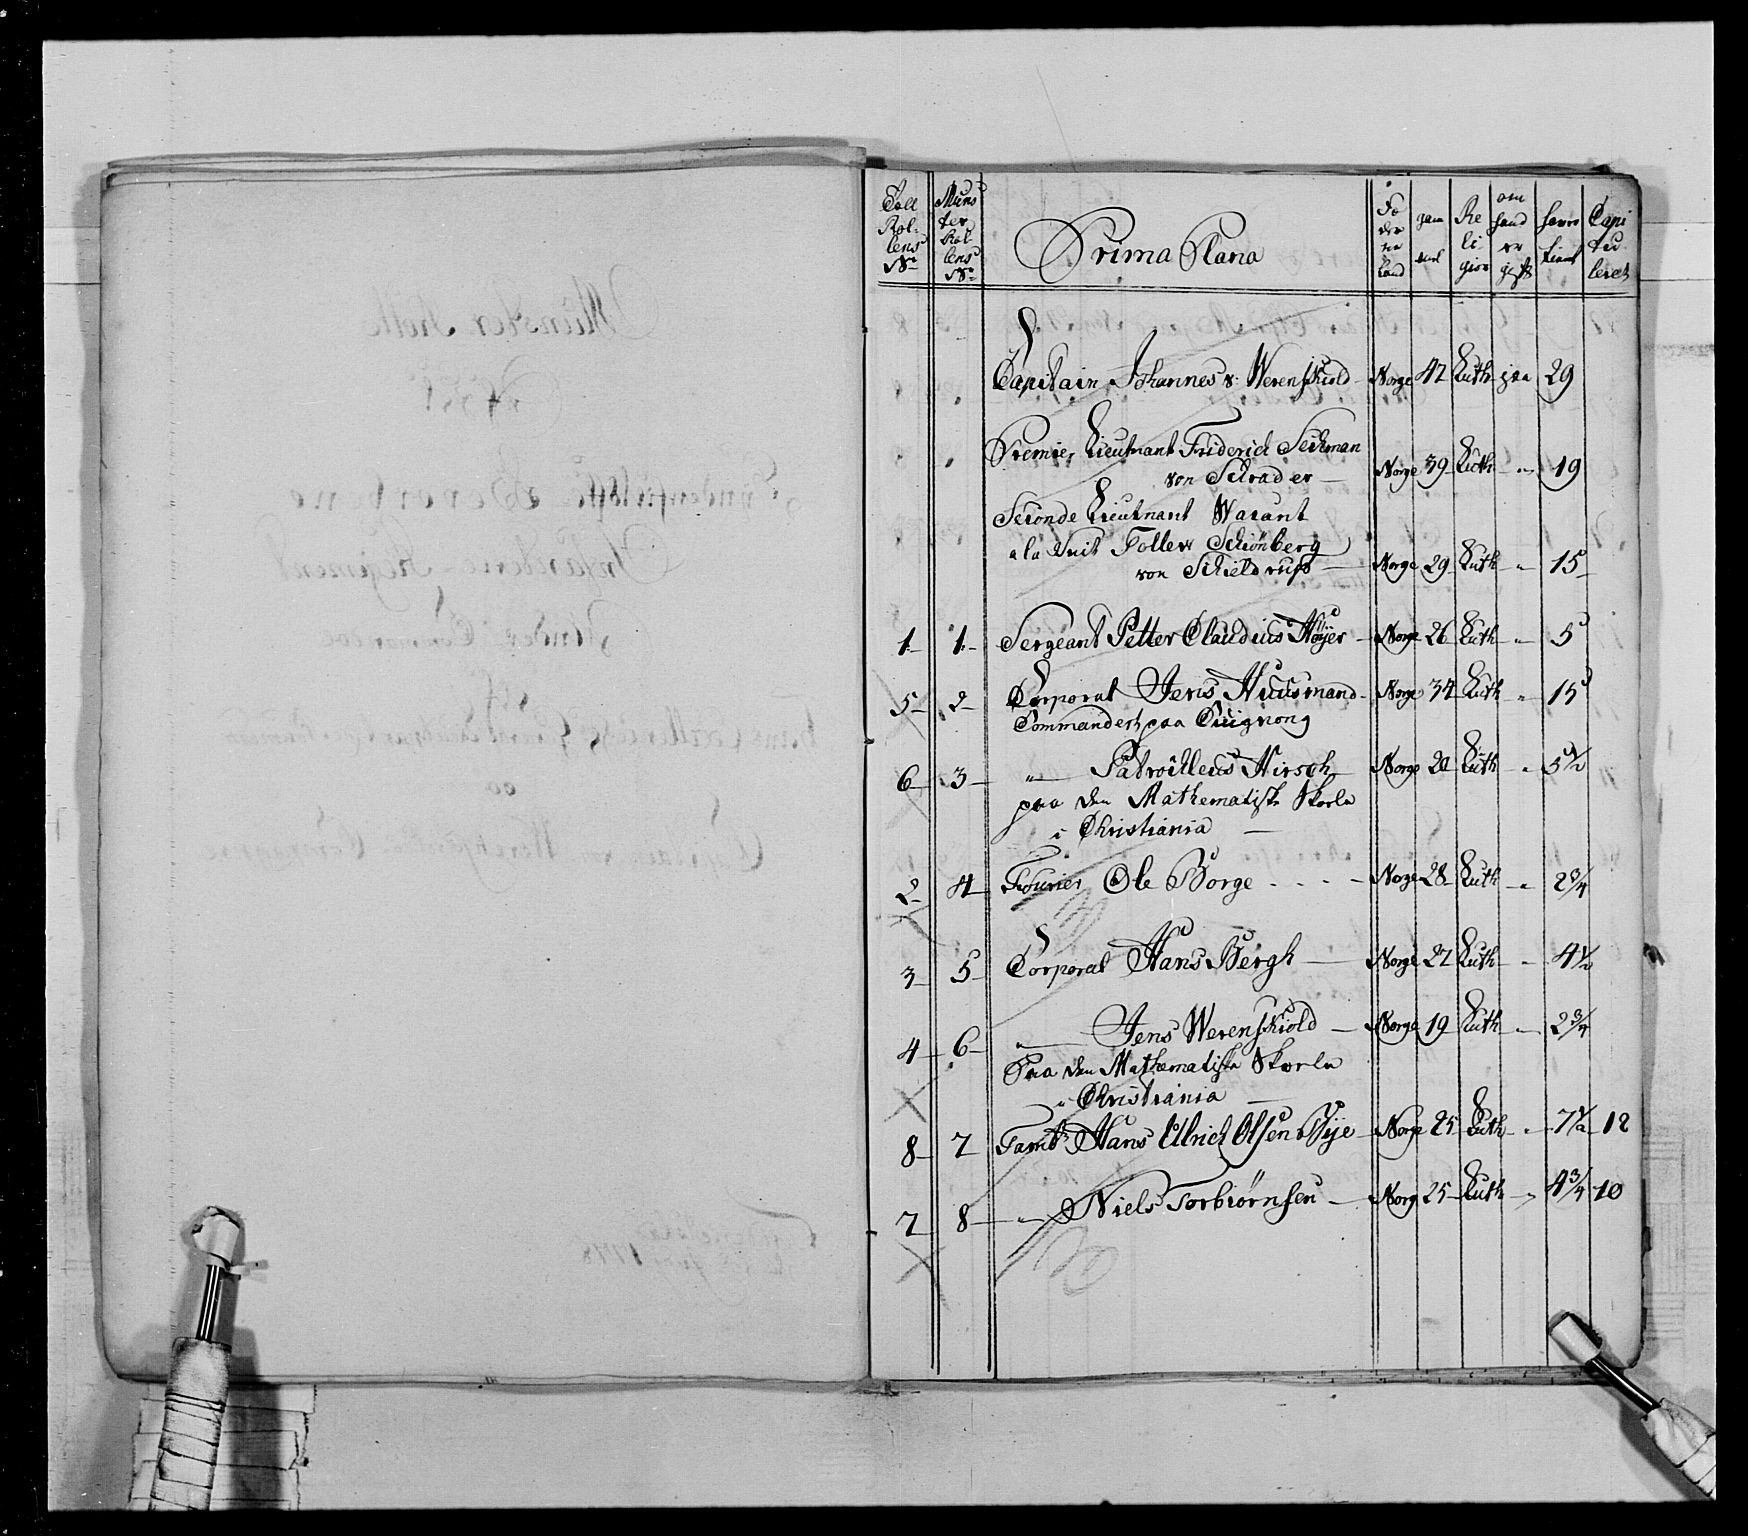 Prima Plana
Rol-
lens
No
Muns
ter
Rol
lens
No
Fø
de
land
Re
li
gion
om
hand
er
gift
Capi
tu-
leret
Capitain Johannes v: Werenskiold - Norge 47 Luth jaa 29
Premier Lieutnant Friderich Seckman
von Schrader - Norge 39 Luth - " - 19
Seconde Lieutnant Wacant
a la Suit Foller Schiønberg
von Schieldrup - Norge 29 Luth - " 15
1 - 1 - Sergeant Petter Claudius Høyer - Norge 26 Luth - " 5
5 - 2 - Corporal Jens Huusmand - Norge 34 Luth - " 15
Commandert paa
6 - 3 - " Patroclus Hirsch Norge 20 Luth - " 5 1/2
paa den Mathematiske Skoele
i Christiania -
2 - 4 - Fourier Ole Borge - - - - Norge 28 Luth - " 2 3/4
3 - 5 - Corporal Hans Bergh - Norge 27 Luth - " 4 1/2
4 - 6 - " Jens Werenskiold - Norge 19 Luth - " 2 3/4
Paa den Mathematiske Skoele
i Christiania -
8 - 7 Tamb: Hans Ulrich Olsen Bye - Norge 25 Luth - " 7 1/2 - 12
7 - 8 - " Niels Torbiørnsen - Norg 25 - Luth - " 4 3/4 - 10